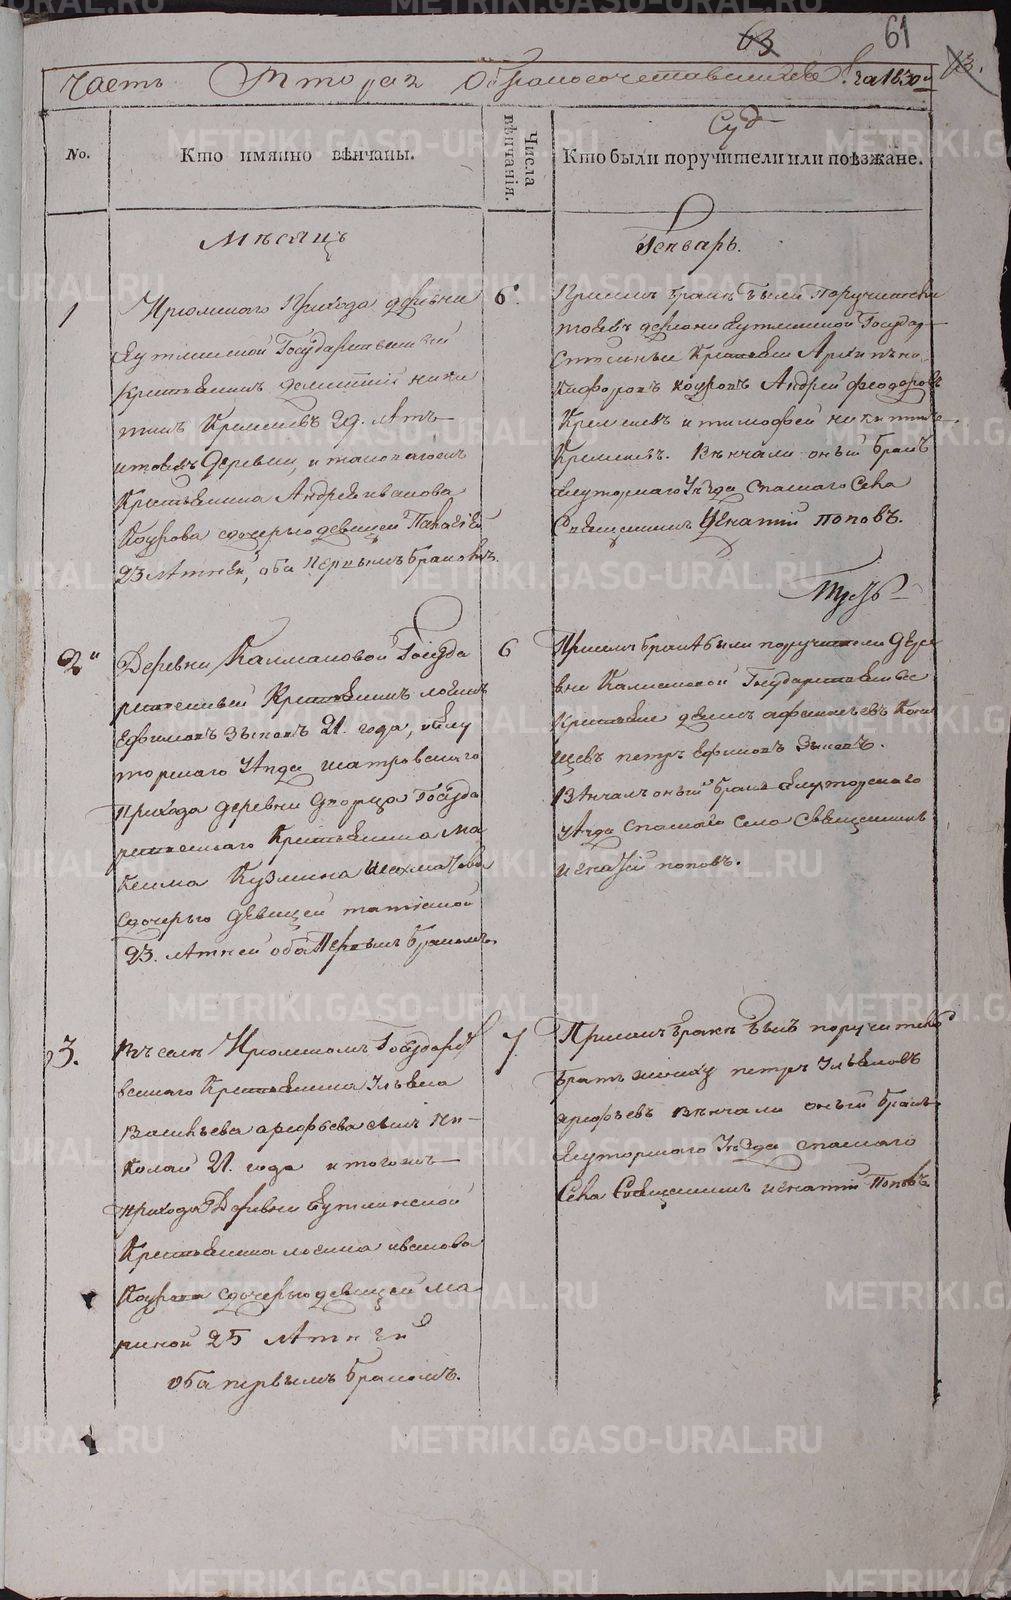 63 61
13.
Часть Вторая О бракосочетавшихся за 1830й
No.
Кто имянно вѣнчаны.
Числа вѣнчанія.
Кто были поручители или поѣзжане.
Суд
Мѣсяцъ
Генварь.
1
Ирюмского Прихода деревни
Бутлинской Государственный
Крестьянинъ Дементий Ники
тинъ Кремлевъ 29. лѣтъ
и тоежъ Деревни, и такоягожъ
Крестьянина Андрея иванова
Коурова с дочерью девицей Пала
23 лѣтней, оба первымъ бракомъ.
6.
При семъ бракѣ были поручители
тоежъ деревни Бутлинской Государ-
ственные Крестьяне Архипъ ни
кифоровъ коуровъ Андрей феодоровъ
Кремлевъ и тимофей никитинъ
Кремлевъ. Вѣнчали оный бракъ
Ялуторскаго Уѣзда Спаского Села
Священникъ Игнатій поповъ.
2й
Деревни Калмаковой Госуда
рственный Крестьянинъ логинъ
Ефимовъ Зыковъ 21. года, Ялу
торскаго Уѣзда шатровского
прихода деревни Дворца Госуда
рственаго Крестьянина Ма
ксима Кузмина шахматова
с дочерью девицей татіяной
23. лѣтней оба Первымъ бракомъ.
6
При семъ бракѣ были поручители Дере
вни Калмаковой Государственные
Крестьяне
петръ Ефимовъ Зыковъ.
Вѣнчалъ оный бракъ Ялуторского
Уѣзда Спаского Села Священникъ
игнатій поповъ.
3.
Въ селѣ Ирюмскомъ Государст
веннаго Крестьянина Ульяна
Васильева арефьева сынъ Ни-
колай 21. года и тогожъ
прихода Деревни Бутлинской
Крестьянина логина иванова
Коурова с дочерью девицей ма
риной 25 лѣтней
оба первымъ бракомъ.
7
При семъ бракѣ былъ поручитель
братъ жениху петръ Ульяновъ
арефьевъ вѣнчали оный бракъ
Ялуторскаго Уѣзда спаскаго
Села Священникъ игнатій Поповъ
METRIKI.GASO-URAL.RU